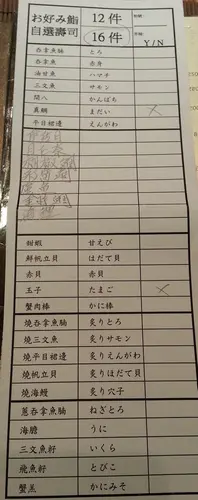 お好み鮨 12件
自選壽司 16件 Y/N
吞拿魚腩 とろ
吞拿魚 赤身
油甘魚 ハマチ
三文魚 サモン
間八 かんぱち
真鯛 まだい ×
平目裙邊 えんがわ
甜蝦 甘えび
鮮帆立貝 ほたて貝
赤貝 赤貝
玉子 たまご ×
蟹肉棒 かに棒
燒吞拿魚腩 炙りとろ
燒三文魚 炙りサモン
燒平目裙邊 炙りえんがわ
燒帆立貝 炙りほたて貝
燒海鰻 炙り穴子
蔥吞拿魚腩 ねぎとろ
海膽 うに
三文魚籽 いくら
飛魚籽 とびこ
蟹羔 かにみそ